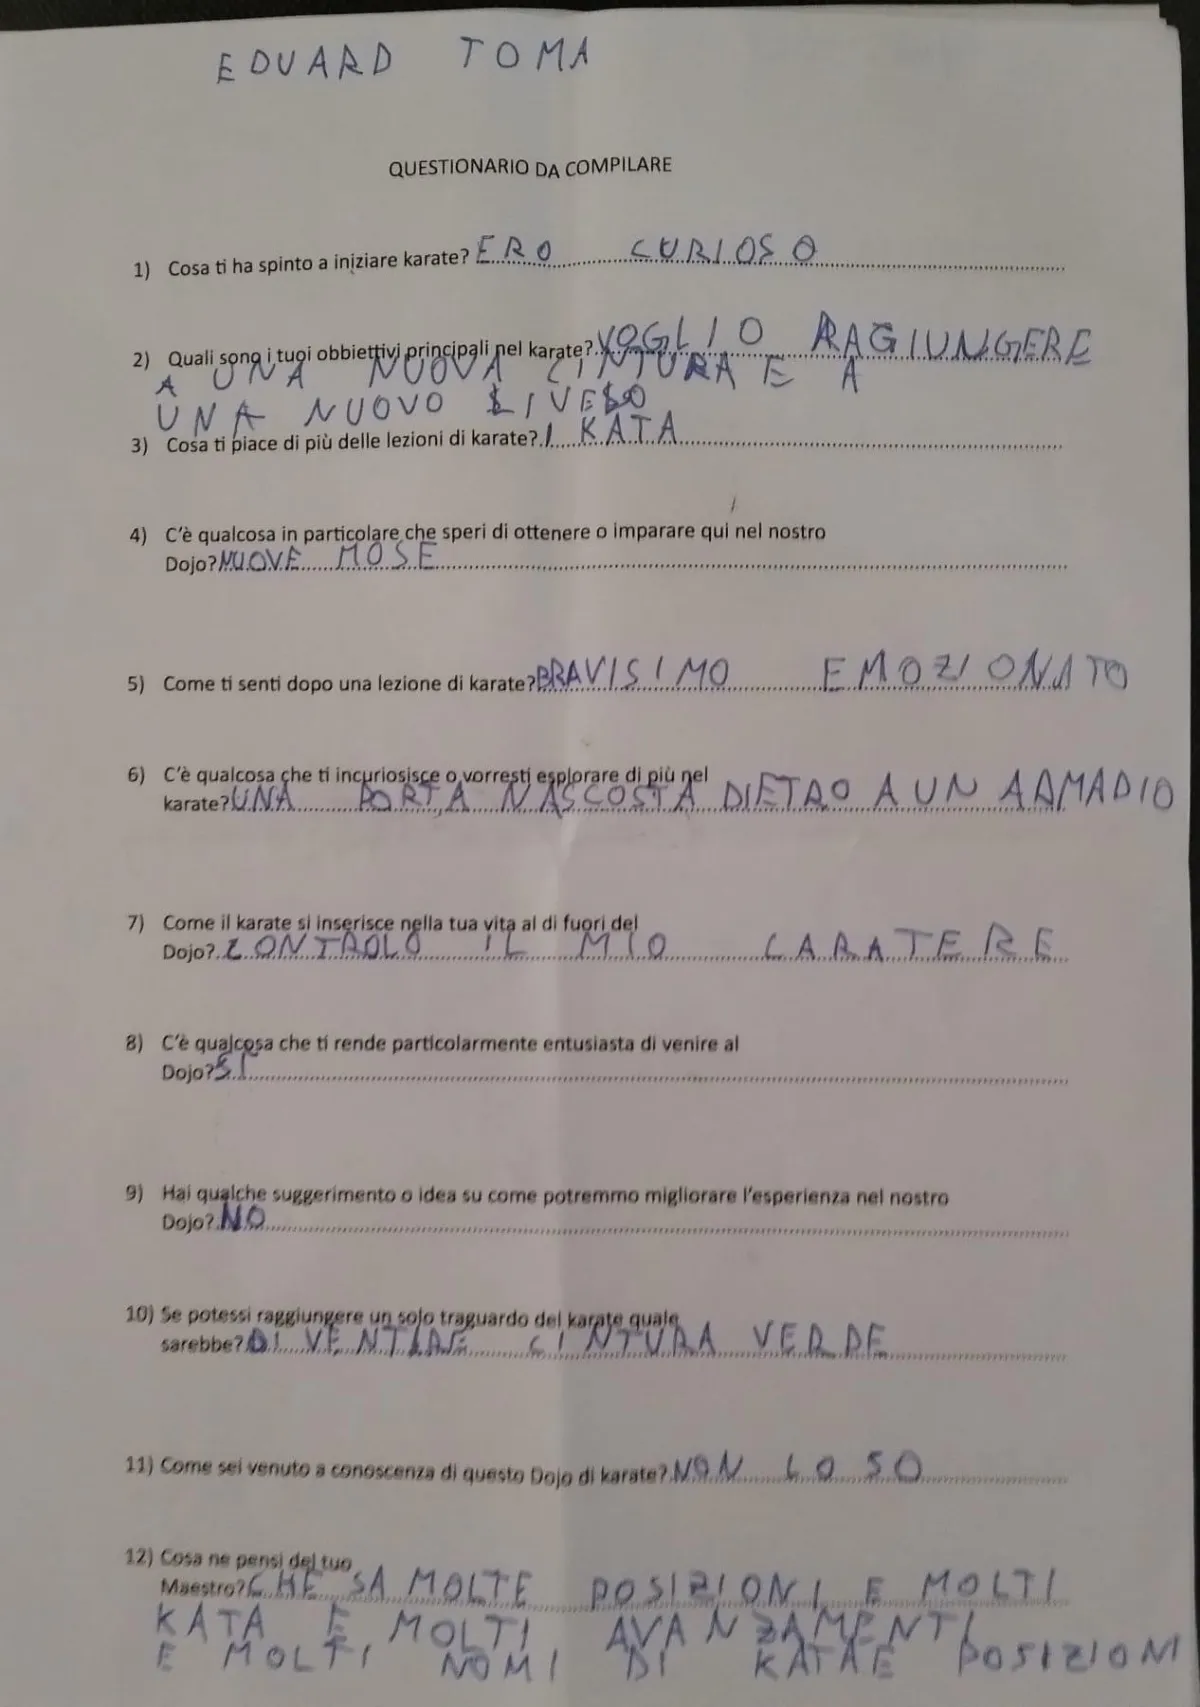 EDUARD TOMA
QUESTIONARIO DA COMPILARE
1) Cosa ti ha spinto a iniziare karate? ERO CURIOSO
2) Quali sono i tuoi obbiettivi principali nel karate? VOGLIO RAGIUNGERE
A UNA NUOVA CINTURA E A
UNA NUOVO LIVELO
3) Cosa ti piace di più delle lezioni di karate? I KATA
4) C'è qualcosa in particolare che speri di ottenere o imparare qui nel nostro
Dojo? NUOVE MOSE
5) Come ti senti dopo una lezione di karate? BRAVISIMO EMOZIONATO
6) C'è qualcosa che ti incuriosisce o vorresti esplorare di più nel
karate? UNA PORTA NASCOSTA DIETRO A UN ARMADIO
7) Come il karate si inserisce nella tua vita al di fuori del
Dojo? CONTROLO IL MIO CARATERE
8) C'è qualcosa che ti rende particolarmente entusiasta di venire al
Dojo? SI
9) Hai qualche suggerimento o idea su come potremmo migliorare l'esperienza nel nostro
Dojo? NO
10) Se potessi raggiungere un solo traguardo del karate quale
sarebbe? DIVENTARE CINTURA VERDE
11) Come sei venuto a conoscenza di questo Dojo di karate? NON LO SO
12) Cosa ne pensi del tuo
Maestro? CHE SA MOLTE POSIZIONI E MOLTI
KATA E MOLTI AVANZAMENTI
E MOLTI NOMI DI KATA E POSIZIONI